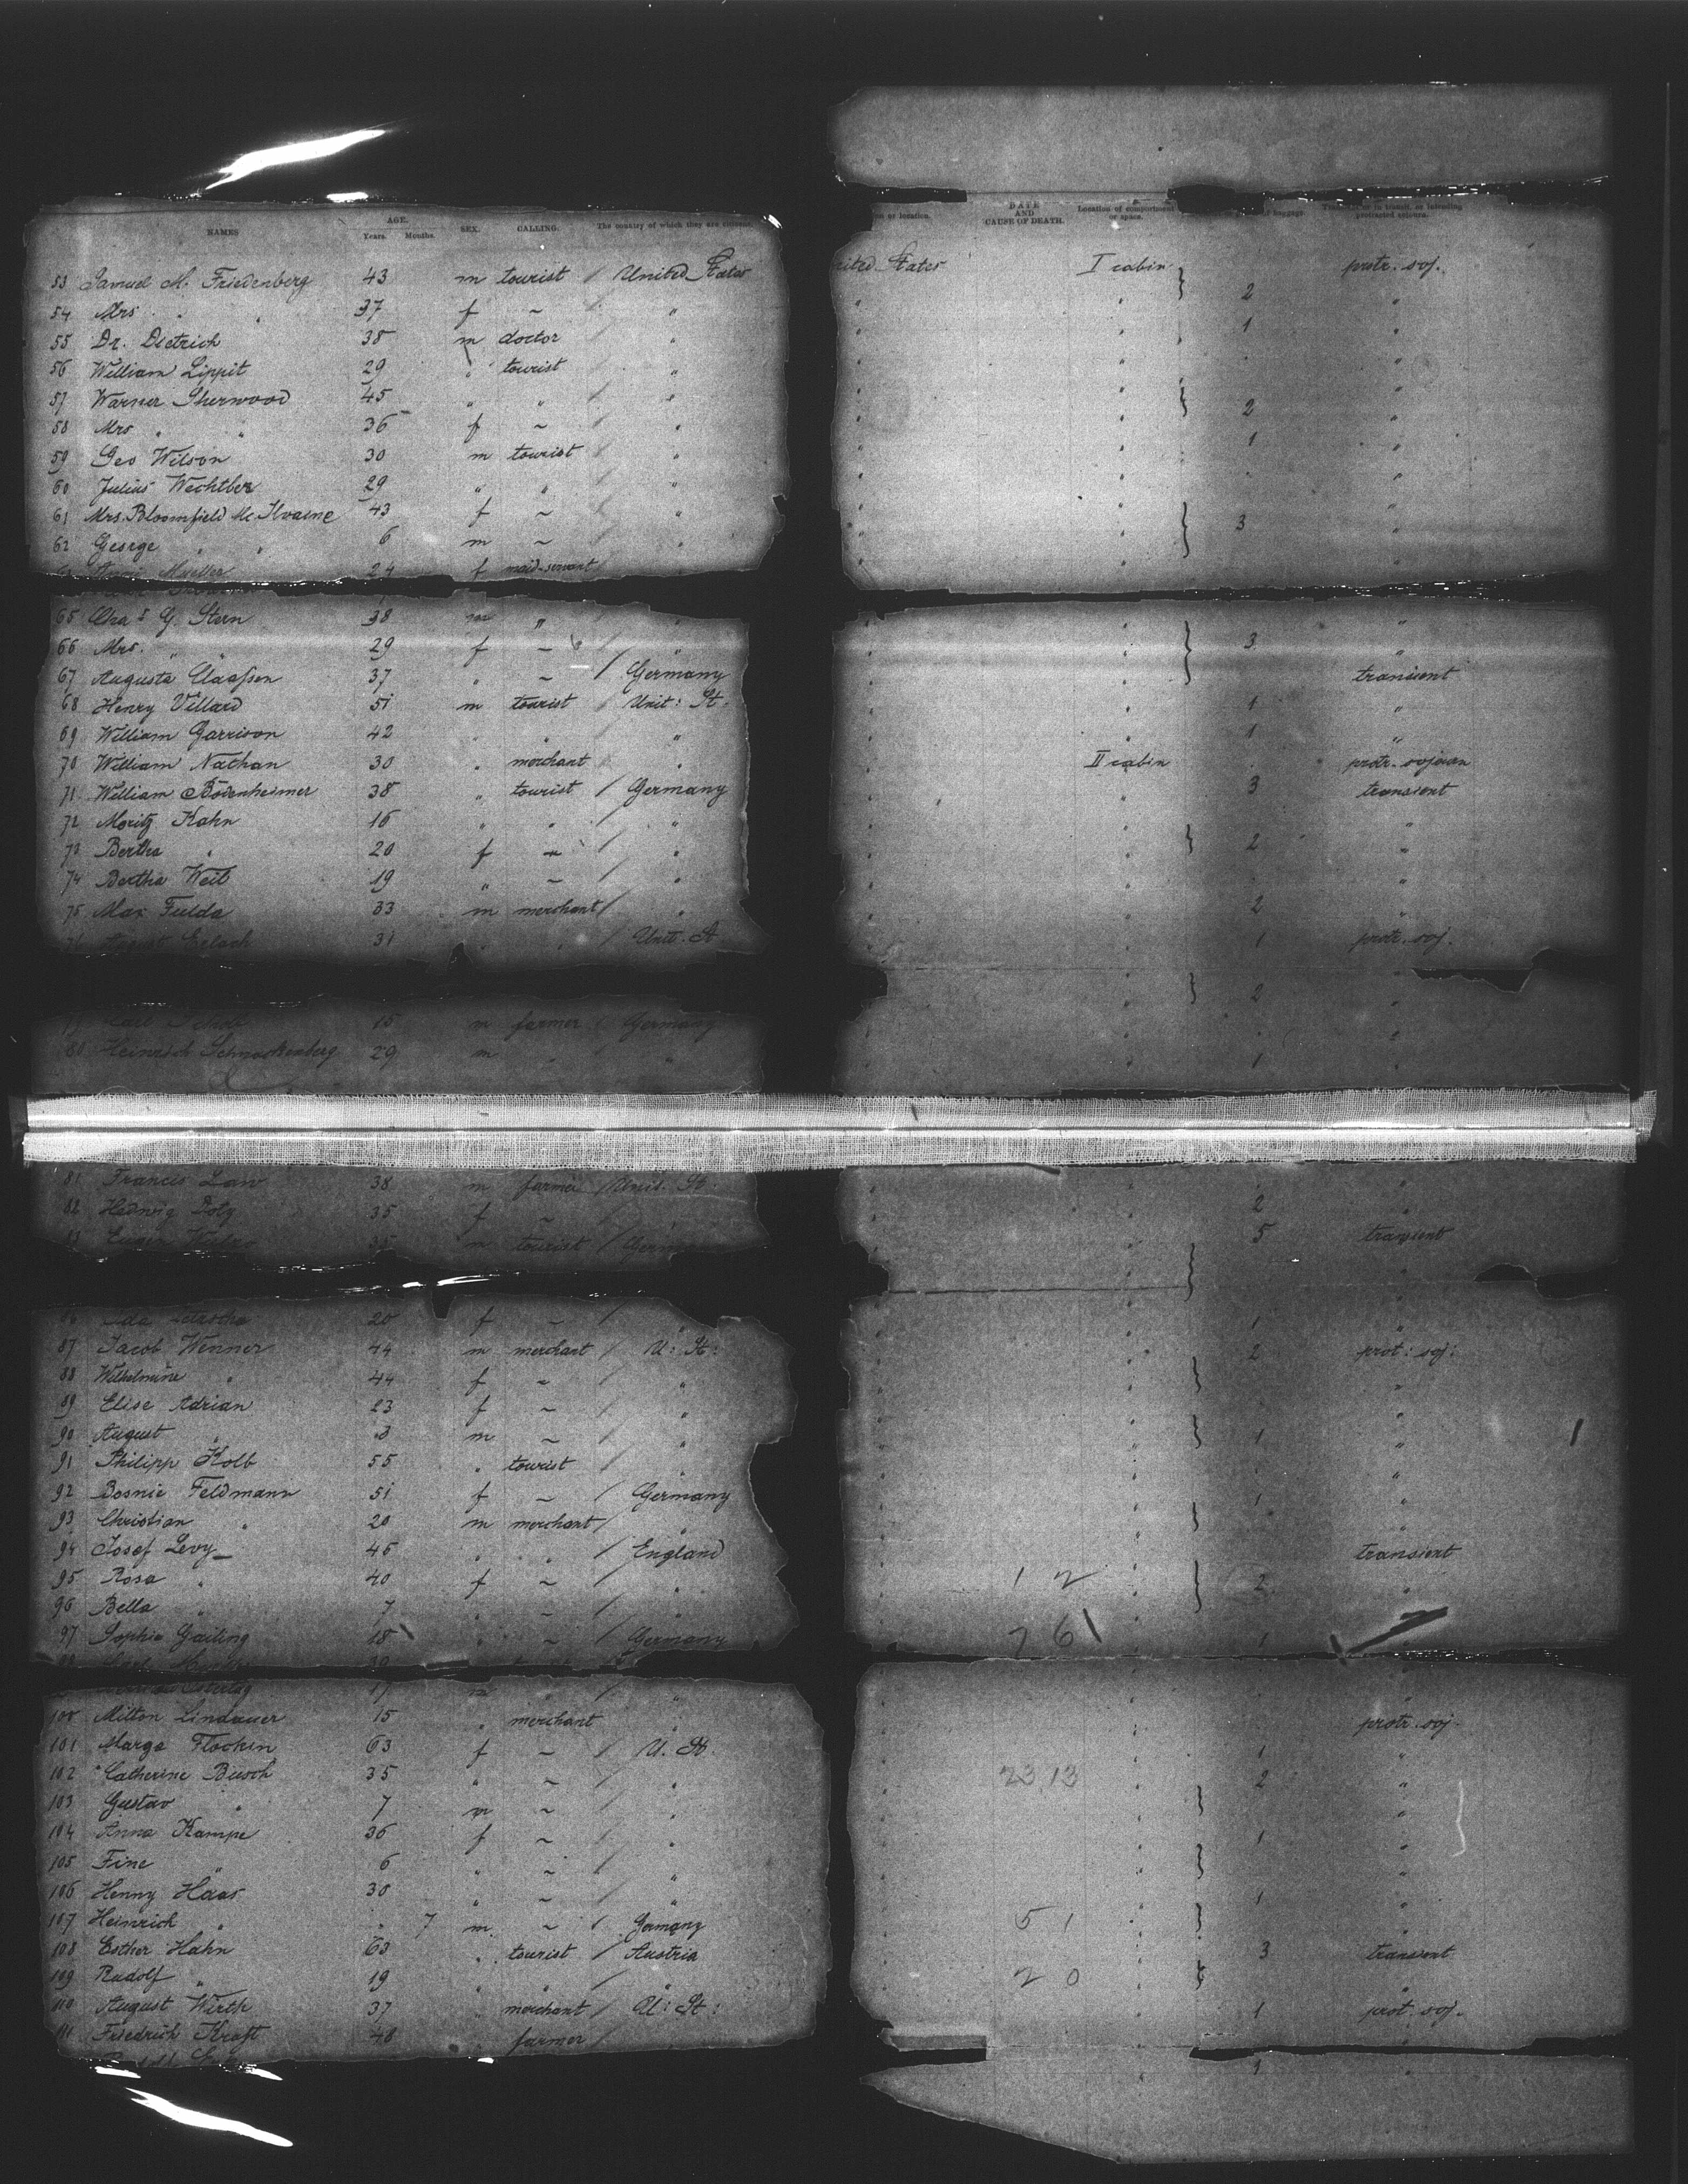 NAMES AGE. Years. Months. SEX. CALLING. The country of which they are citizens.
53 Samuel M. Friedenberg 43 m tourist / United States
54 Mrs " " 37 f ~ / "
55 Dr. Dietrich 38 m doctor / "
56 William Lippit 29 " tourist / "
57 Warner Sherwood 45 " " / "
58 Mrs " " 36 f ~ / "
59 Geo Wilson 30 m tourist / "
60 Julius Wechtler 29 " " / "
61 Mrs. Bloomfield Mc. Ilvaine 43 f ~ / "
62 George " " 6 m ~ / "
Mueller 24 f maid-servant /
65 Chas G. Stern 38 m " / "
66 Mrs. " " 29 f ~ / "
67 Augusta Claassen 37 " ~ / Germany
68 Henry Villard 51 m tourist / Unit: St.
69 William Garrison 42 " " / "
70 William Nathan 30 " merchant / "
71 William Bodenheimer 38 " tourist / Germany
72 Moritz Kahn 16 " " / "
73 Bertha " 20 f ~ / "
74 Bertha Weil 19 " ~ / "
75 Max Fulda 33 m merchant / "
76 August 31 " " / Unit. St
Carl 15 m farmer / Germany
80 Heinrich Schnackenberg 29 m " "
81 Francis Law 38 m farmer / Unit. St.
82 Hedwig 35 f ~ /
35 m tourist /
86 Ida 20 f ~ /
87 Jacob Wenner 44 m merchant / U: St:
88 Wilhelmine " 44 f ~ / "
89 Elise Adrian 23 f ~ / "
90 August " 3 m ~ / "
91 Philipp Kolb 55 " tourist / "
92 Bosnie Feldmann 51 f ~ / Germany
93 Christian " 20 m merchant / "
94 Josef Levy 45 " " / England
95 Rosa " 40 f ~ / "
96 Bella " 7 " ~ / "
97 Sophie Gailing 18 " ~ / Germany
17 m " / "
100 Milton Lindauer 15 " merchant "
101 Marga Flocken 63 f ~ / U. St.
102 Catherine Busch 35 " ~ / "
103 Gustav " 7 m ~ / "
104 Anna Kampe 36 f ~ / "
105 Fine " 6 " ~ / "
106 Henny Haas 30 " ~ / "
107 Heinrich " " 7 m ~ / Germany
108 Esther Hahn 63 " tourist / Austria
109 Rudolf " 19 " " / "
110 August Wirth 37 " merchant / U: St:
111 Friedrich Kraft 48 farmer /
or location. DATE AND CAUSE OF DEATH. Location of compartment or space. of baggage. in transit, or intending protracted sojourn.
ited States I cabin protr. soj.
2 "
1 "
"
2 "
1 "
"
3 "
"
3 "
transient
1 "
1 "
II cabin protr. sojourn
3 transient
"
2 "
"
2 "
1 protr. soj.
2 "
"
1 "
"
2 "
5 transient
"
1 "
2 prot: soj:
"
"
1 "
"
1 "
"
transient
1 2 2 "
7 6 1
1 "
"
protr. soj.
1 "
23 13 2 "
"
1 "
"
1
5 1 "
3 transient
2 0 "
1 prot. soj.
"
1 "